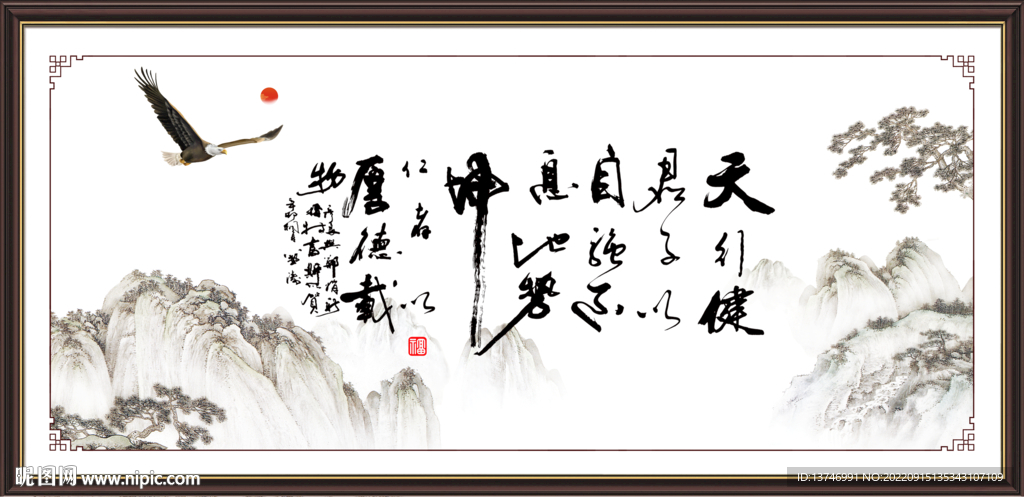 天行健
君子以
自強不
息地勢
坤
仁者以
厚德載
物
福
昵图网 www.nipic.com
ID:13746991 NO:20220915135343107109